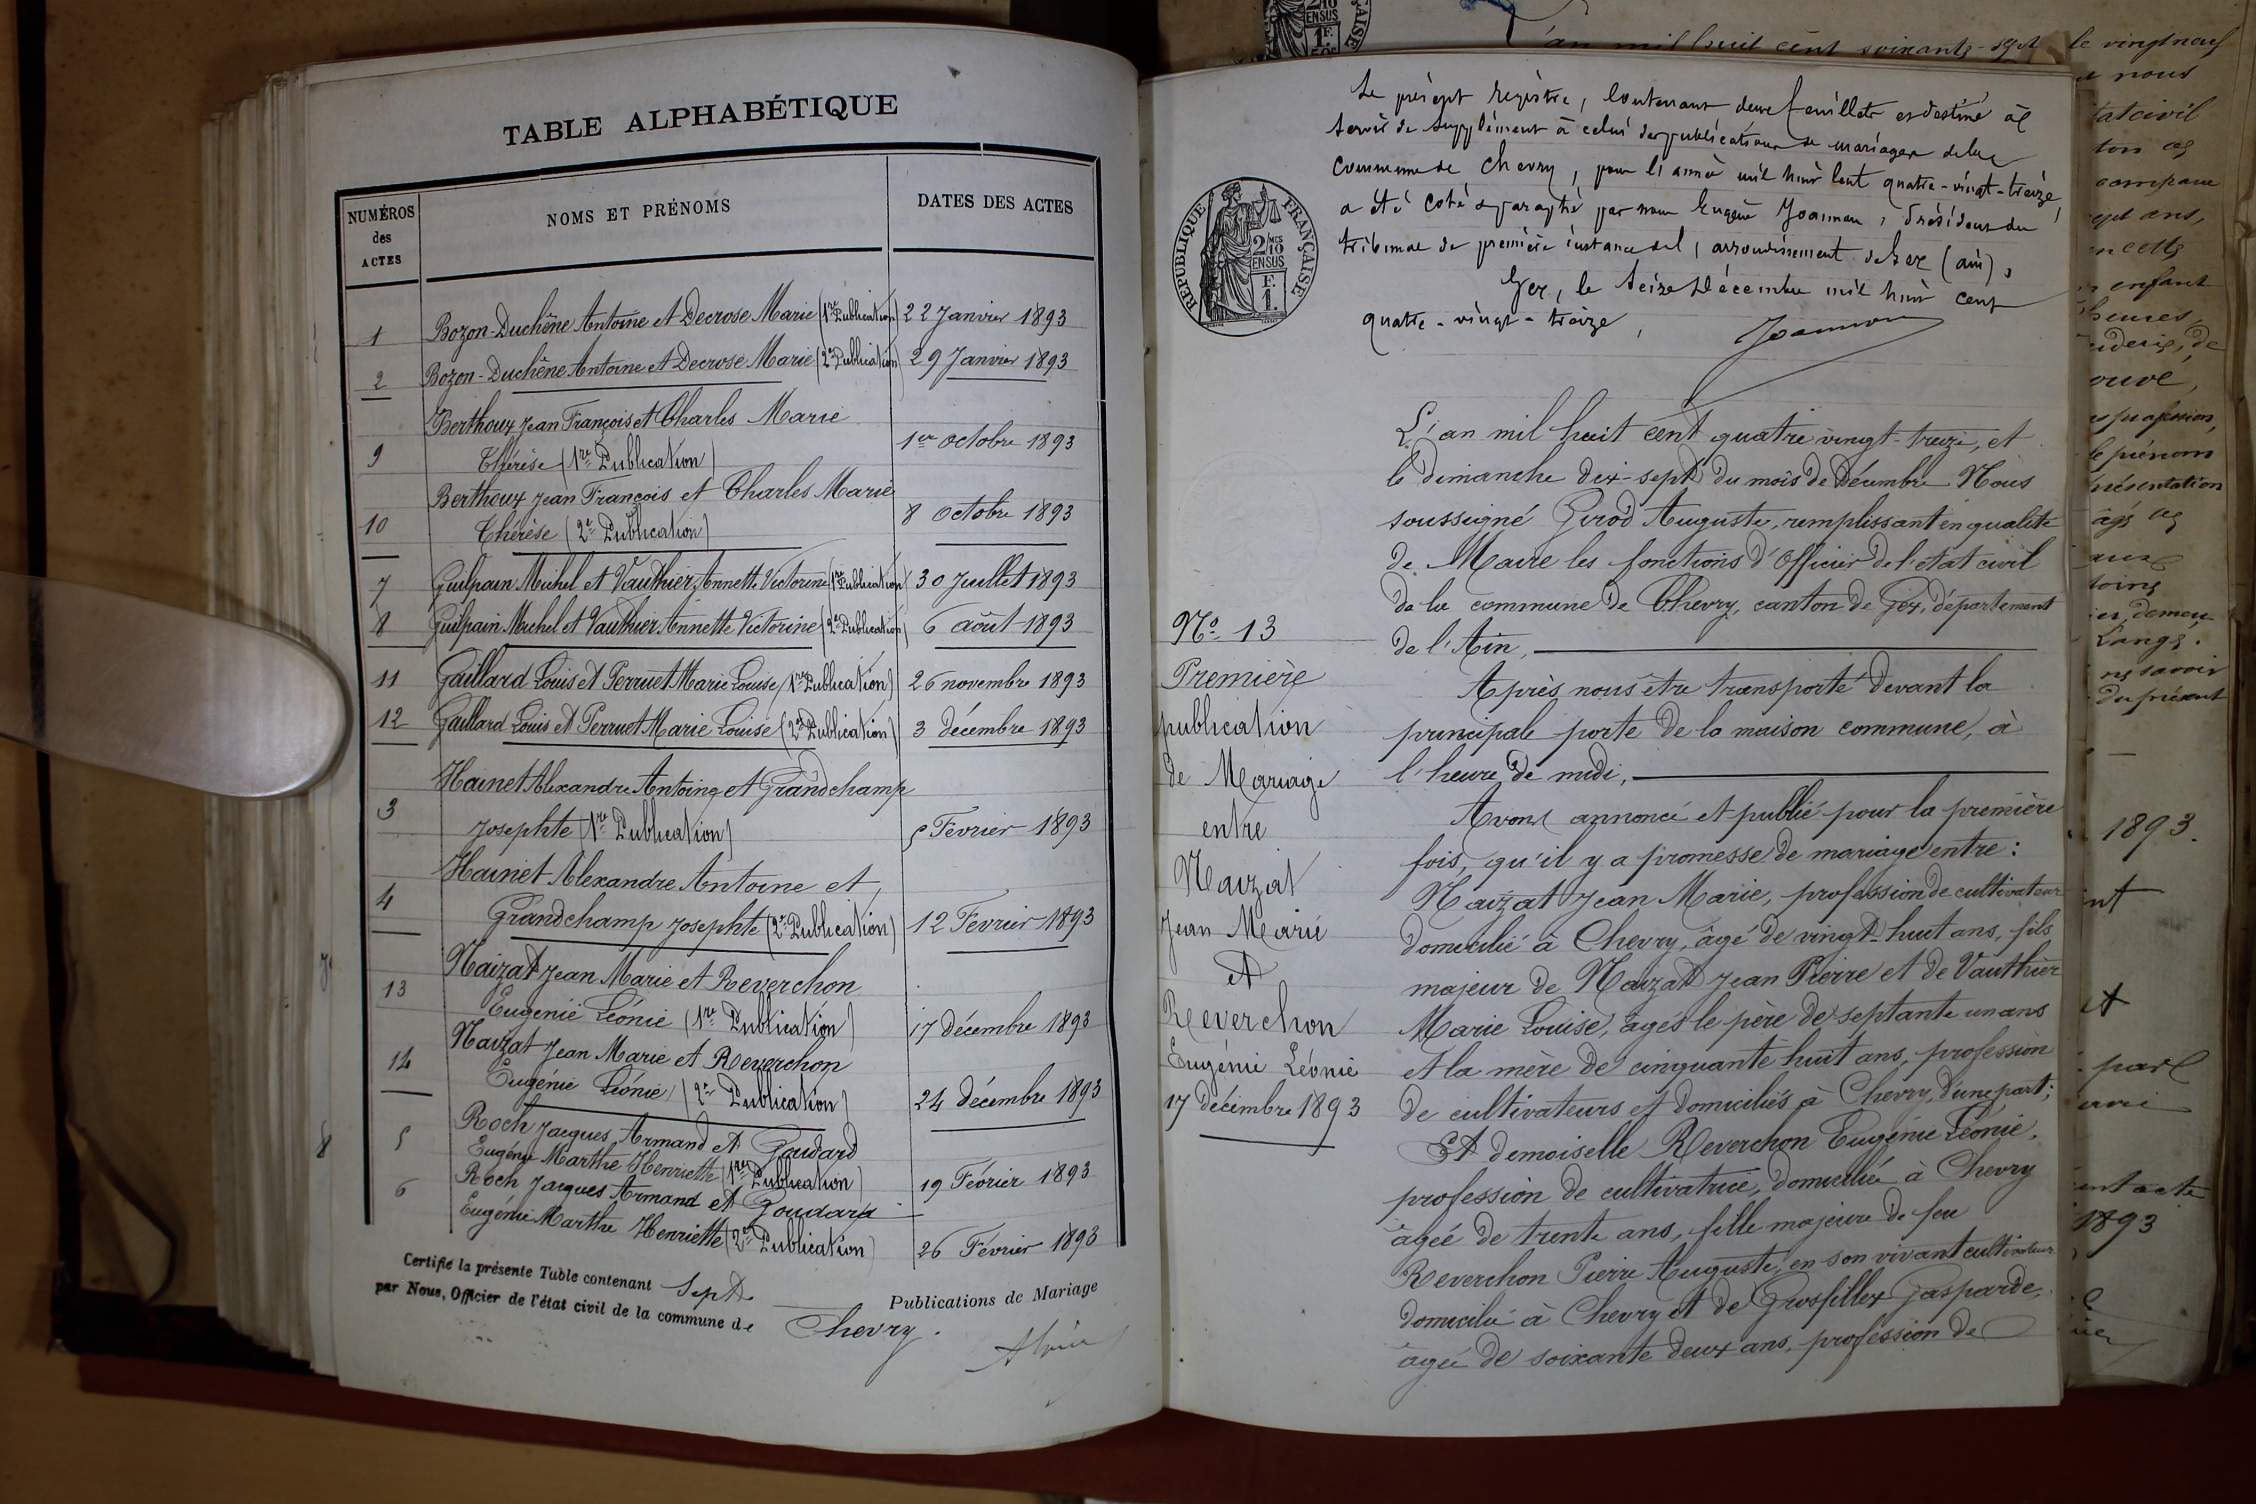 TABLE ALPHABÉTIQUE
NUMÉROS des ACTES
NOMS ET PRÉNOMS
DATES DES ACTES
1 Bozon-Duchêne Antoine et Decrose Marie (1re Publication) 22 Janvier 1893
2 Bozon-Duchêne Antoine et Decrose Marie (2e Publication) 29 Janvier 1893
Berthoux Jean François et Charles Marie
9 Thérèse (1re Publication) 1er octobre 1893
Berthoux Jean François et Charles Marie
10 Thérèse (2e Publication) 8 octobre 1893
7 Guilpain Michel et Vauthier Annette Victorine (1re Publication) 30 Juillet 1893
8 Guilpain Michel et Vauthier Annette Victorine (2e Publication) 6 août 1893
11 Gaillard Louis et Perruet Marie Louise (1re Publication) 26 novembre 1893
12 Gaillard Louis et Perruet Marie Louise (2e Publication) 3 décembre 1893
Hainet Alexandre Antoine et Grandchamp
3 Josephte (1re Publication) 5 Février 1893
Hainet Alexandre Antoine et
4 Grandchamp Josephte (2e Publication) 12 Février 1893
Naizat Jean Marie et Reverchon
13 Eugénie Léonie (1re Publication) 17 décembre 1893
Naizat Jean Marie et Reverchon
14 Eugénie Léonie (2e Publication) 24 décembre 1893
Roch Jacques Armand et Goudard
5 Eugénie Marthe Henriette (1re Publication) 19 Février 1893
Roch Jacques Armand et Goudard
6 Eugénie Marthe Henriette (2e Publication) 26 Février 1893
Certifié la présente Table contenant Sept Publications de Mariage
par Nous, Officier de l'état civil de la commune de Chevry.
Le présent registre, contenant deux feuillets et destiné à
servir de supplément à celui des publications de mariages de la
commune de Chevry, pour l'année mil huit cent quatre-vingt-treize,
a été coté & paraphé par nous Eugène Joannon, Président du
tribunal de première instance de l'arrondissement de Gex (ain),
Gex, le seize Décembre mil huit cent
quatre-vingt-treize,
Joannon
RÉPUBLIQUE FRANÇAISE
2/10 MES
EN SUS
1 F.
L'an mil huit cent quatre vingt-treize, et
le dimanche dix-sept du mois de Décembre Nous
soussigné Girod Auguste, remplissant en qualité
de Maire les fonctions d'Officier de l'état civil
de la commune de Chevry, canton de Gex, département
de l'Ain,
Après nous être transporté devant la
principale porte de la maison commune, à
l'heure de midi,
Avons annoncé et publié pour la première
fois, qu'il y a promesse de mariage entre:
Naizat Jean Marie, profession de cultivateur
domicilié à Chevry, âgé de vingt-huit ans, fils
majeur de Naizat Jean Pierre et de Vauthier
Marie Louise, âgés le père de septante un ans
et la mère de cinquante huit ans, profession
de cultivateurs et domiciliés à Chevry, d'une part;
Et demoiselle Reverchon Eugénie Léonie,
profession de cultivatrice, domiciliée à Chevry
âgée de trente ans, fille majeure de feu
Reverchon Pierre Auguste, en son vivant cultivateur
domicilié à Chevry et de Grosfillex Gasparde,
âgée de soixante deux ans, profession de
No 13
Première
publication
de Mariage
entre
Naizat
Jean Marie
et
Reverchon
Eugénie Léonie
17 décembre 1893
L'an mil huit cent soixante-sept le vingt neuf
nous
état civil
ans,
enfant
heures,
profession,
le prénom
présentation
du présent
1893.
par
acte
1893